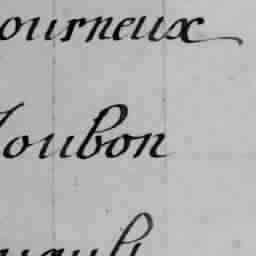 ourneux
oubon